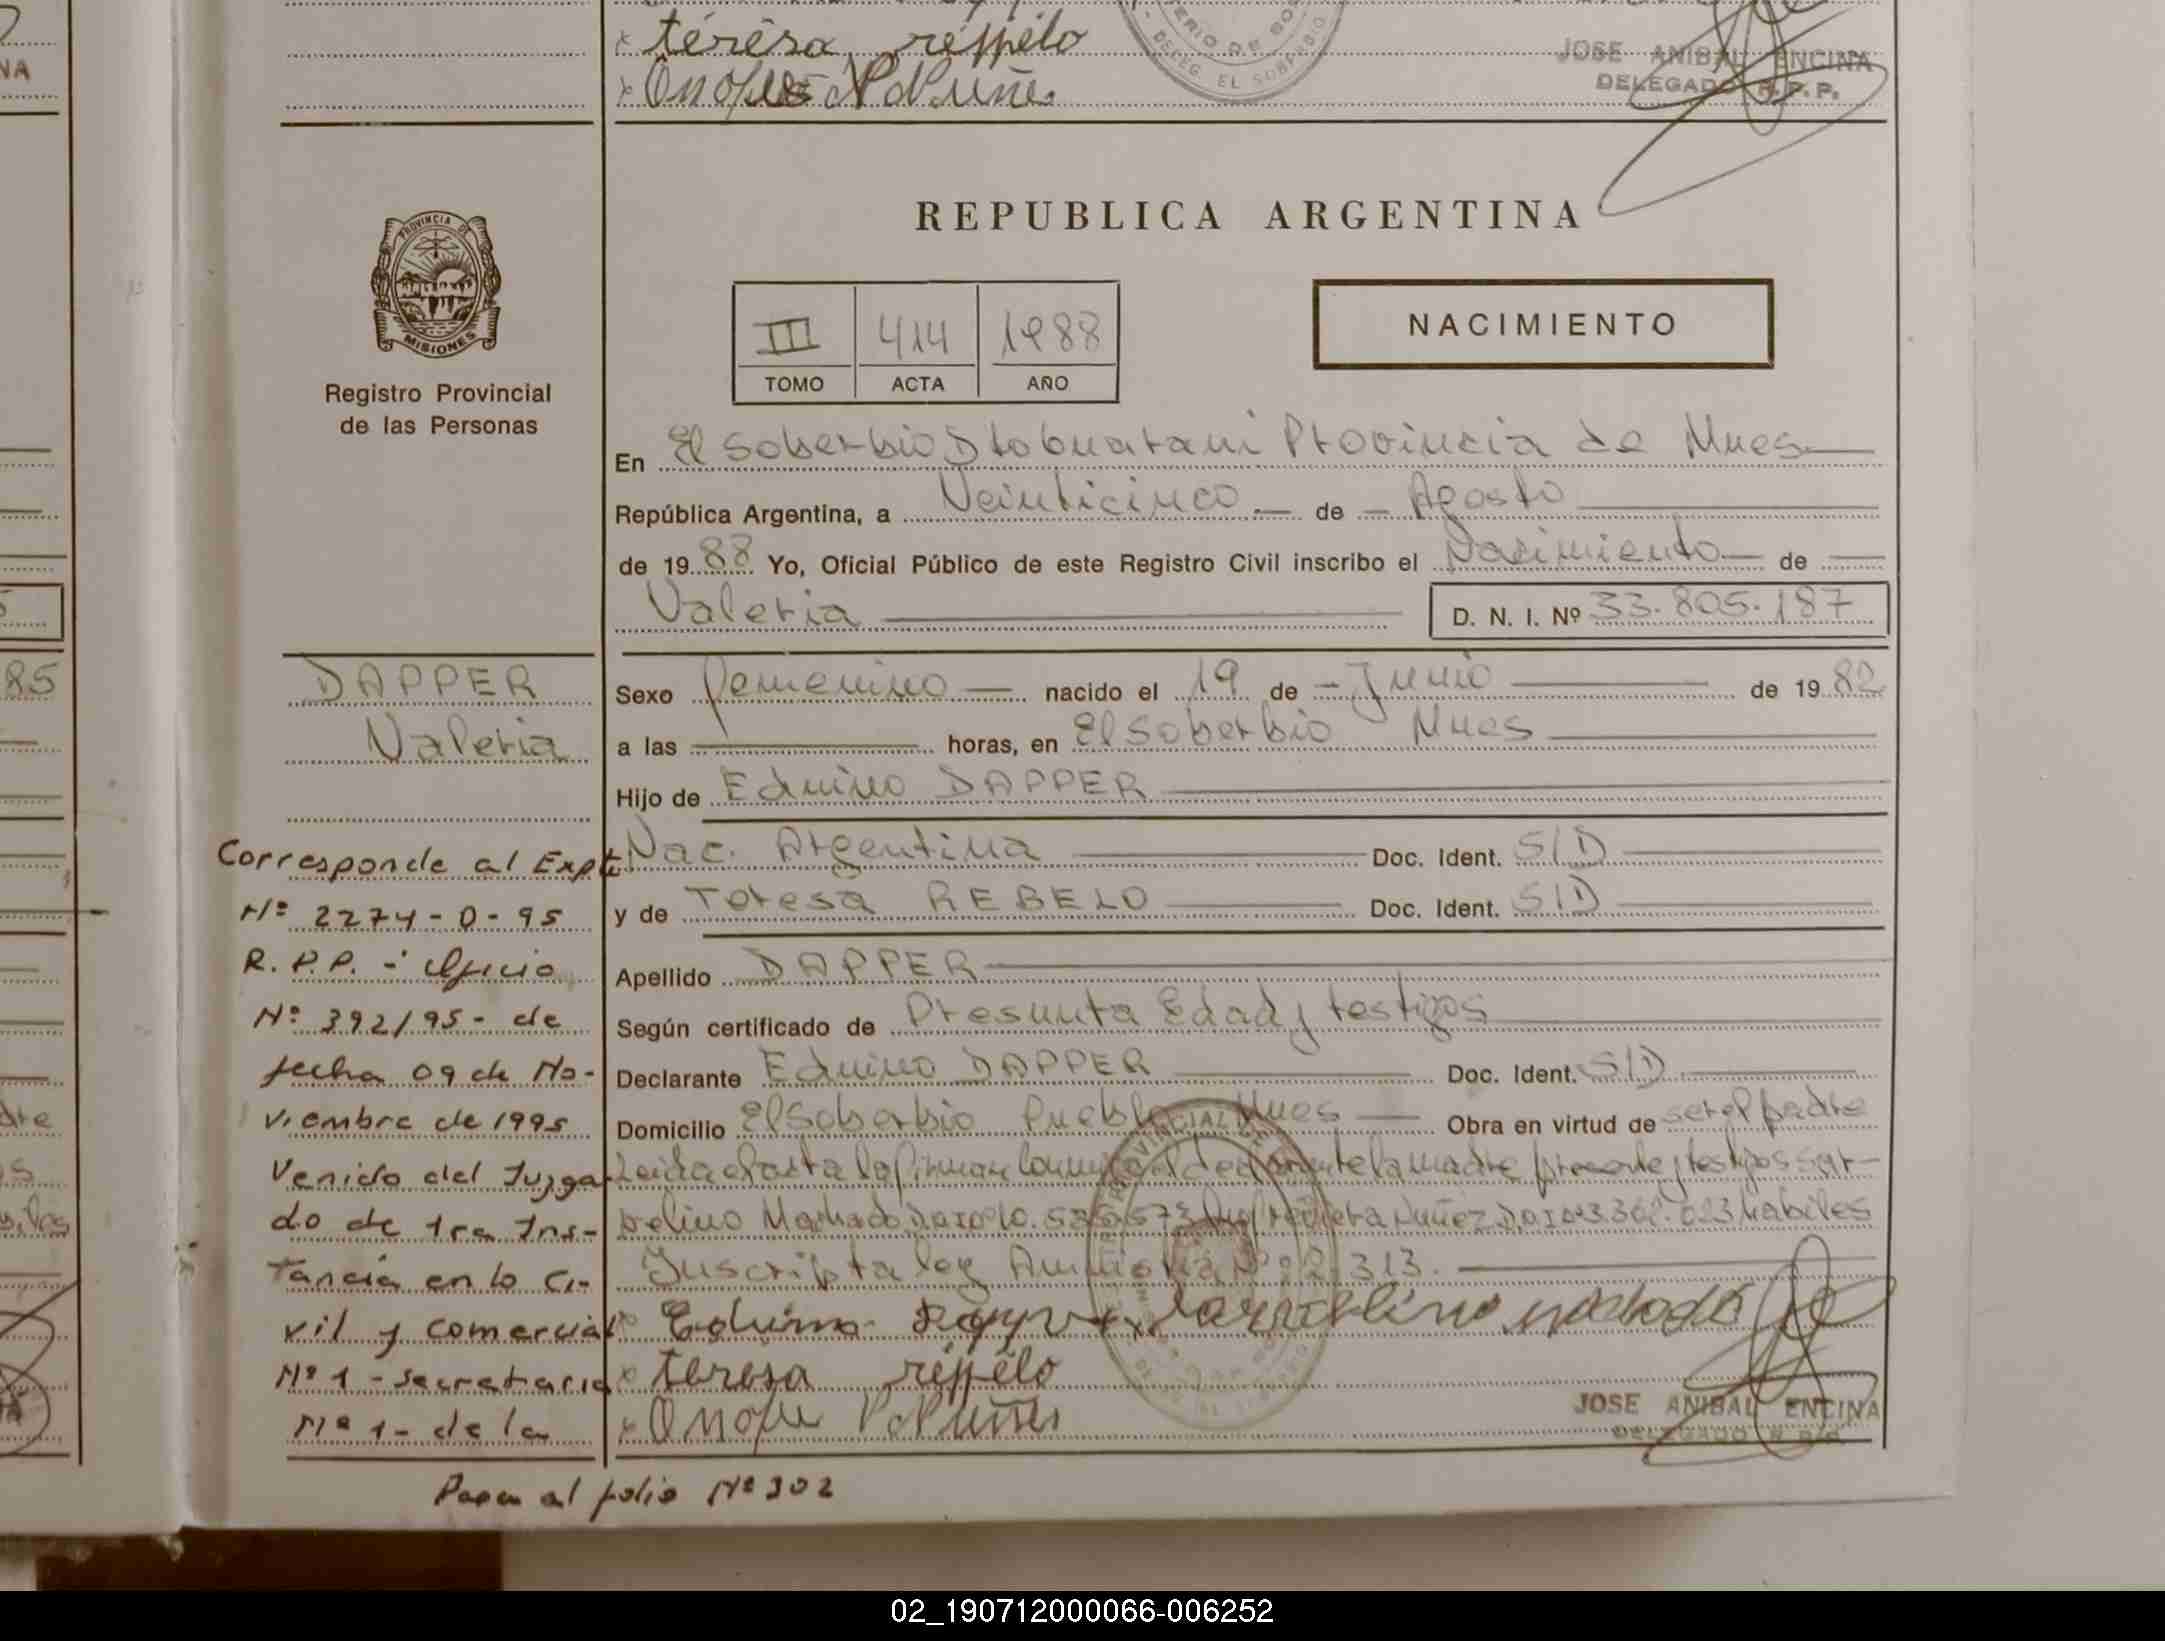 térésa réppélo
Onofre
DELEG. EL SOBERBIO
JOSE ANIBAL ENCINA
DELEGADO R.P.P.
PROVINCIA DE
MISIONES
Registro Provincial
de las Personas
REPUBLICA ARGENTINA
III 414 1988
TOMO ACTA AÑO
NACIMIENTO
En El Soberbio Dto Guarani Provincia de Mnes
República Argentina, a Veinticinco de Agosto
de 1988 Yo, Oficial Público de este Registro Civil inscribo el Nacimiento de
Valeria D. N. I. Nº 33.805.187
DAPPER
Valeria
Sexo Femenino nacido el 19 de Junio de 1982
a las horas, en El Soberbio Mnes
Hijo de Eduino DAPPER
Nac. Argentina Doc. Ident. S/D
y de Teresa REBELO Doc. Ident. S/D
Apellido DAPPER
Según certificado de Presunta Edad y testigos
Declarante Eduino DAPPER Doc. Ident. S/D
Domicilio El Soberbio Pueblo Mnes Obra en virtud de ser el padre
Leida el acta la firman conmigo el declarante la madre presente y testigos
Machado hábiles
Inscripta ley Amnistia Nº 22.313.
Corresponde al Expte
Nº 2274-0-95
R.P.P. - Oficio
Nº 392/95- de
fecha 09 de No-
viembre de 1995
Venido del Juzga-
do de 1ra Ins-
tancia en lo Ci-
vil y comercial
Nº 1 - secretaria
Nº 1- de la
Pasa al folio Nº 302
Eduino
teresa réppélo
Onofre
JOSE ANIBAL ENCINA
DELEGADO R.P.P.
85
02_190712000066-006252